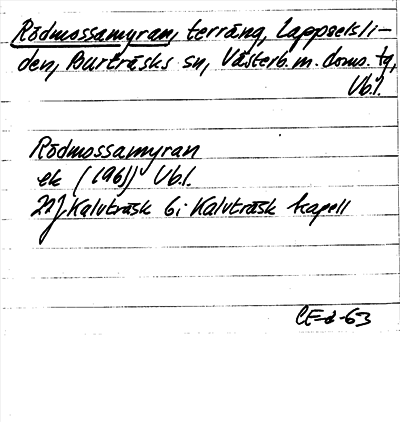 Rödmossamyran, terräng, Lappselsli-
den, Burträsks sn, Västerb. m. doms. tg,
Vb.l.
Rödmossamyran
ek (1961) Vb.l.
22J Kalvträsk 6i Kalvträsk kapell
CE-d-63